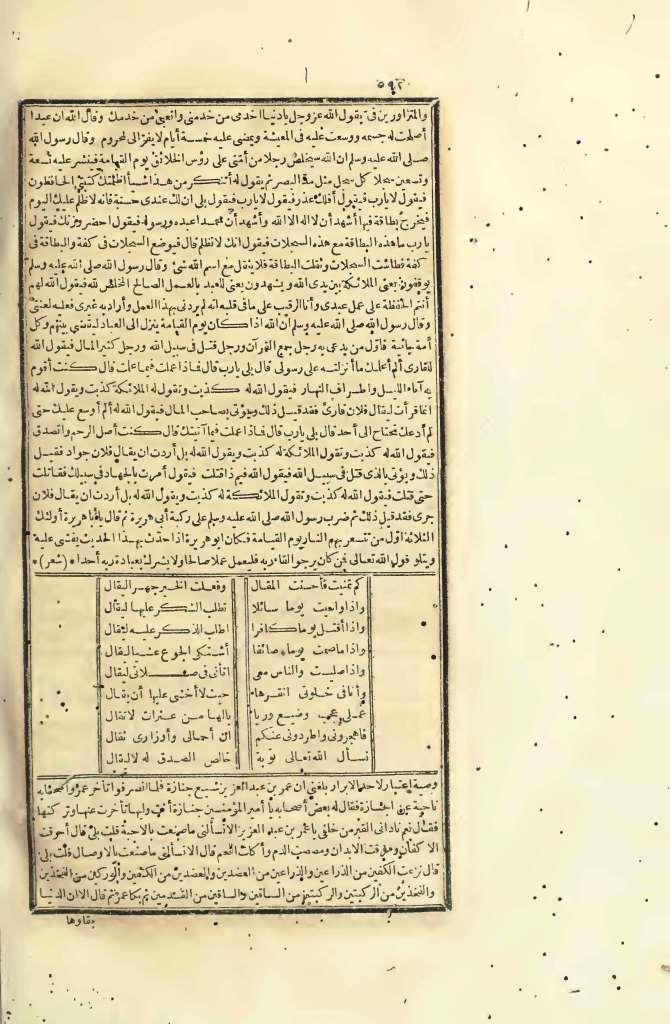 ٥٩٣
والمتزاورين فيّ يقول الله عز وجل يا دنيا اخدمى من خدمنى واتعبى من خدمك وقال الله ان عبدا
أصلحت له جسمه ووسعت عليه فى المعيشة ويمضى عليه خمسة أيام لا يفد الى لمحروم وقال رسول الله
صلى الله عليه وسلم ان الله سيخلص رجلا من أمتى على رؤس الخلائق يوم القيامة فينشر عليه تسعة
وتسعين سجلا كل سجل مثل مد البصر ثم يقول له أتنكر من هذا شيأ أظلمتك كتبتى الحافظون
فيقول لا يارب فيقول أفلك عذر فيقول لا يارب فيقول بلى ان لك عندى حسنة فانه لا ظلم عليك اليوم
فيخرج بطاقة فيها أشهد أن لا اله الا الله وأشهد أن محمدا عبده ورسوله فيقول احضر وزنك فيقول
يارب ما هذه البطاقة مع هذه السجلات فيقول انك لا تظلم قال فيوضع السجلات فى كفة والبطاقة فى
كفة فطاشت السجلات وثقلت البطاقة فلا يثقل مع اسم الله شئ وقال رسول الله صلى الله عليه وسلم
يوقفون يعنى الملائكة بين يدى الله ويشهدون يعنى للعبد بالعمل الصالح المخلص لله فيقول الله لهم
أنتم الحفظة على عمل عبدى وأنا الرقيب على ما فى قلبه انه لم يردنى بهذا العمل وأراد به غيرى فعليه لعنتى
وقال رسول الله صلى الله عليه وسلم ان الله اذا كان يوم القيامة ينزل الى العباد ليقضى بينهم وكل
أمة جاثية فاول من يدعى به رجل جمع القرآن ورجل قتل فى سبيل الله ورجل كثير المال فيقول الله
للقارئ ألم أعلمك ما أنزلته على رسولى قال بلى يارب قال فماذا عملت فيما علمت قال كنت أقوم
به آناء الليل وأطراف النهار فيقول الله له كذبت وتقول له الملائكة كذبت ويقول الله له
انما قرأت ليقال فلان قارئ فقد قيل ذلك ويؤتى بصاحب المال فيقول الله له ألم أوسع عليك حتى
لم أدعك تحتاج الى أحد قال بلى يارب قال فماذا عملت فيما آتيتك قال كنت أصل الرحم وأتصدق
فيقول الله له كذبت وتقول الملائكة له كذبت ويقول الله له بل أردت ان يقال فلان جواد فقد قيل
ذلك ويؤتى بالذى قتل فى سبيل الله فيقول الله فيم ذا قتلت فيقول أمرت بالجهاد فى سبيلك فقاتلت
حتى قتلت فيقول الله له كذبت وتقول الملائكة له كذبت ويقول الله له بل أردت ان يقال فلان
جرى فقد قيل ذلك ثم ضرب رسول الله صلى الله عليه وسلم على ركبة أبى هريرة ثم قال يا أبا هريرة أولئك
الثلاثة أول من تسعر بهم النار يوم القيامة فكان ابو هريرة اذا حدث بهذا الحديث يغشى عليه
ويتلو قول الله تعالى فمن كان يرجو القاء ربه فليعمل عملا صالحا ولا يشرك بعبادة ربه أحدا * (شعر) *
كم تمنيت فأحسنت المقال وفعلت الخير جهرا ليقال
واذا واعيت يوما سائلا تطلب الشكر عليها ليقال
واذا أقتل يوما كافرا اطلب الذكر عليه ليقال
واذا ما صمت يوما صائفا أشتكى الجوع عشيا ليقال
واذا صليت والناس معى أتأنى فى صلاتى ليقال
وأنا فى خلوتى انقرها حيث لا أخشى عليها أن يقال
عملى عجب وضيع وريا يالها من عثرات لا تقال
فاهجرونى واطردونى عنكم ان أحمالى وأوزارى ثقال
نسأل الله تعالى توبة خالص الصدق له لا ليقال
وصية اعتبار لاحد الابرار بلغنى ان عمر بن عبد العزيز شيع جنازة فلما انصرفوا تأخر عمر وأصحابه
ناحية عن الجنازة فقال له بعض أصحابه يا أمير المؤمنين جنازة أنت وليها تأخرت عنها وتركتها
فقال نعم نادانى القبر من خلفى يا عمر بن عبد العزيز الا تسألنى ما صنعت بالاحبة قلت بلى قال أحرقت
الاكفان ومزقت الابدان ومصصت الدم وأكلت اللحم قال الا تسألنى ما صنعت بالاوصال قلت بلى
قال نزعت الكفين من الذراعين والذراعين من العضدين والعضدين من الكتفين والوركين من الفخذين
والفخذين من الركبتين والركبتين من الساقين والساقين من القدمين ثم بكا عمر ثم قال الا ان الدنيا
بقاؤها